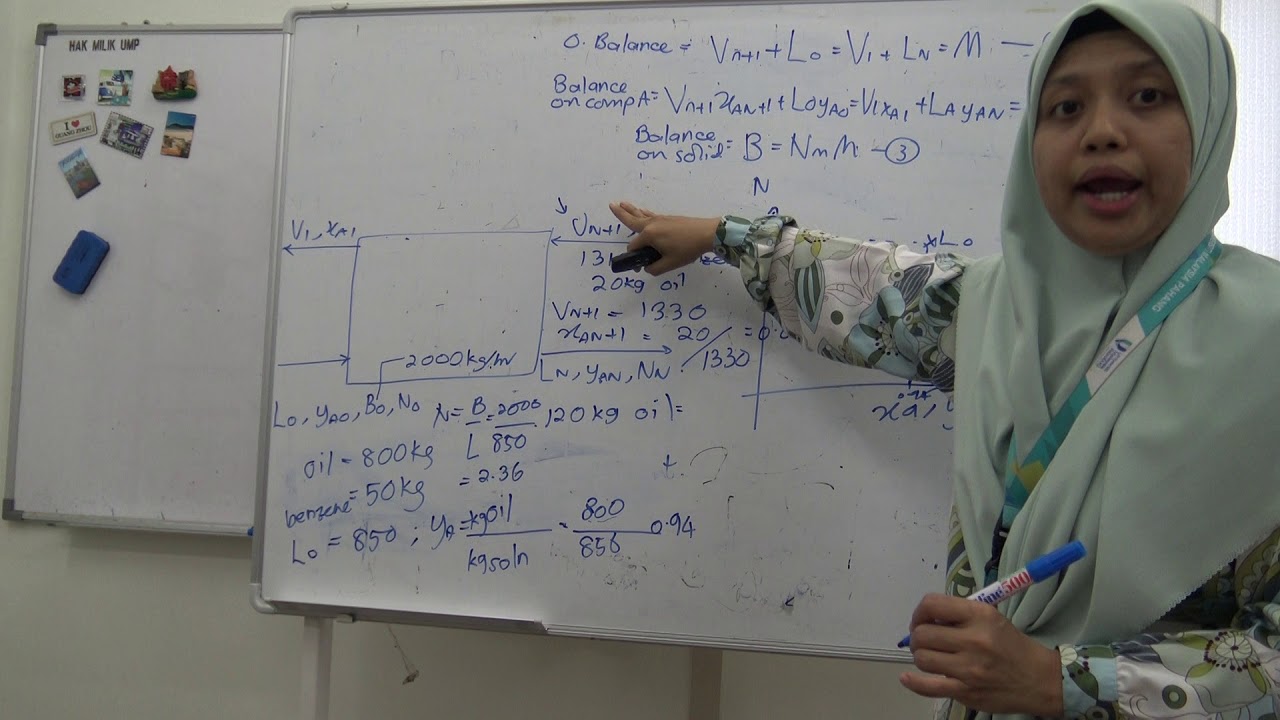 HAK MILIK UMP
I ♥
GUANG ZHOU
O. Balance = Vn+1 + L0 = V1 + LN = M —
Balance
on comp A = Vn+1 xAN+1 + L0 yA0 = V1 xA1 + LA yAN =
Balance
on solid = B = Nm M — ③
N
V1, xA1
VN+1,
L0
131
20kg oil
VN+1 = 1330
xAN+1 = 20/1330 = 0.0
2000kg/hr
LN, yAN, NN
xA, y
L0, yA0, B0, N0
N = B/L = 2000/850
120 kg oil =
= 2.36
oil = 800kg
benzene = 50kg
L0 = 850 ; yA = kg oil/kg soln = 800/850 0.94
MALAYSIA PAHANG
500